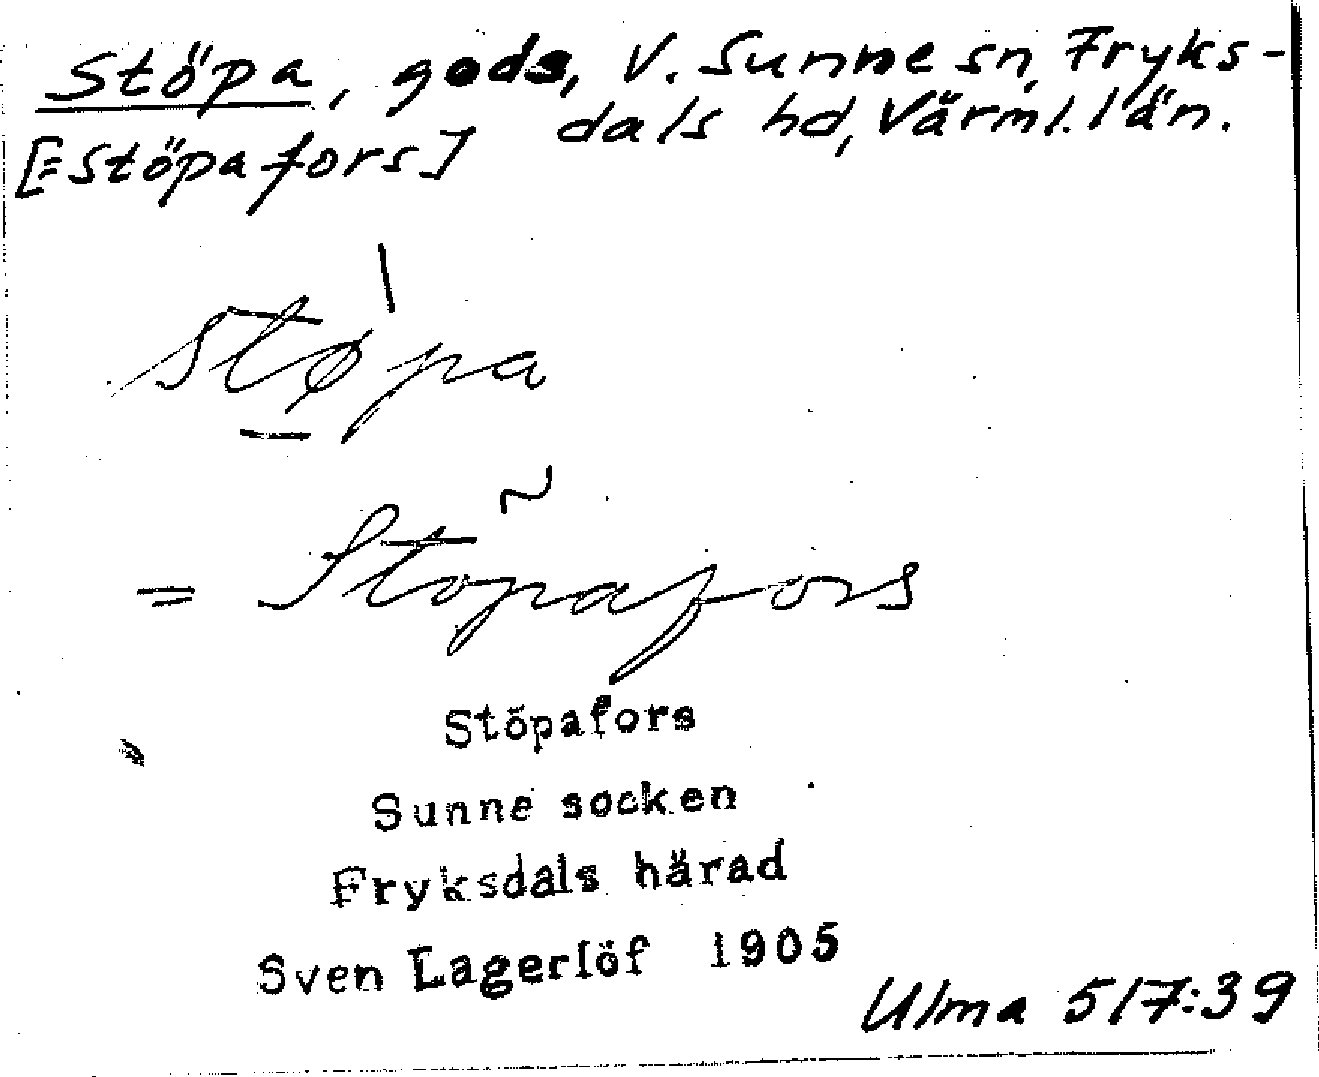 Stöpa, gods, V. Sunne sn, Fryks-
[=Stöpafors] dals hd, Värml. län.
støpa
= Stöpafors
Stöpafors
Sunne socken
Fryksdals härad
Sven Lagerlöf 1905
Ulma 517:39